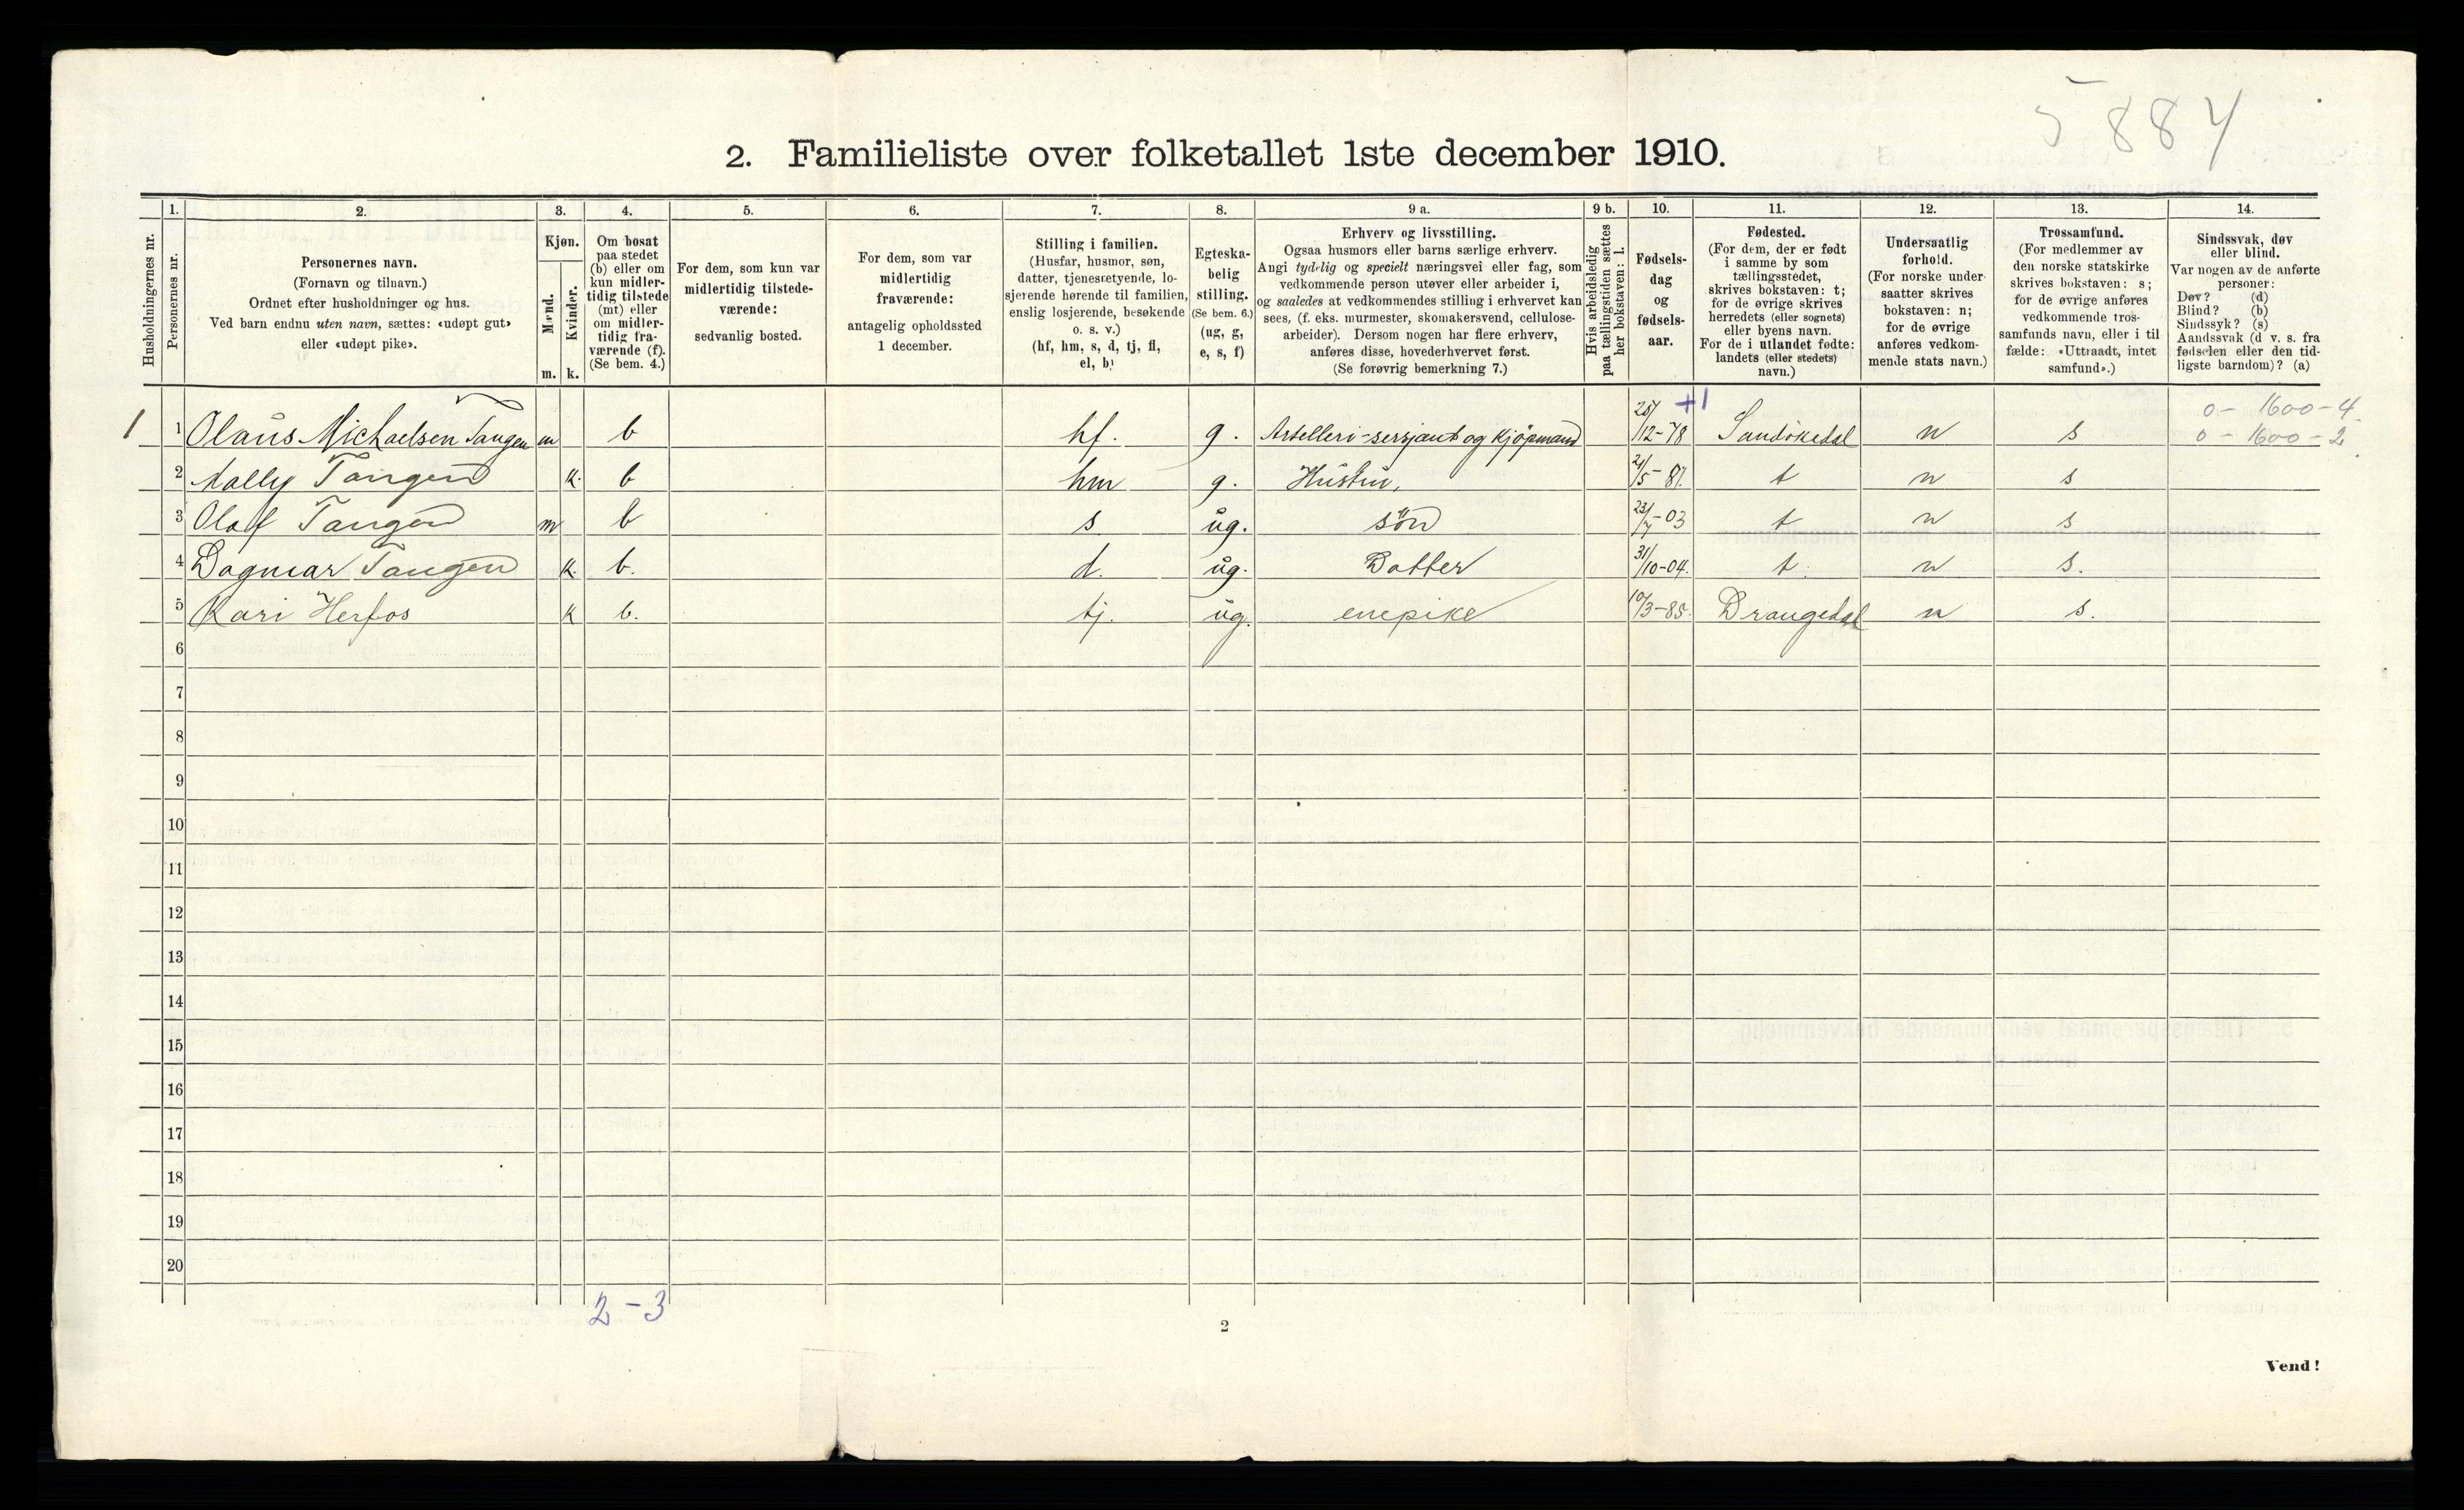 5884
2. Familieliste over folketallet 1ste december 1910.
Husholdningernes nr.
1.
Personernes nr.
2.
Personernes navn.
(Fornavn og tilnavn.)
Ordnet efter husholdninger og hus.
Ved barn endnu uten navn, sættes: «udøpt gut»
eller «udøpt pike».
3.
Kjøn.
Mænd.
Kvinder.
m. k.
4.
Om bosat
paa stedet
(b) eller om
kun midler-
tidig tilstede
(mt) eller
om midler-
tidig fra-
værende (f).
(Se bem. 4.)
5.
For dem, som kun var
midlertidig tilstede-
værende:
sedvanlig bosted.
6.
For dem, som var
midlertidig
fraværende:
antagelig opholdssted
1 december.
7.
Stilling i familien.
(Husfar, husmor, søn,
datter, tjenestetyende, lo-
sjerende hørende til familien,
enslig losjerende, besøkende
o. s. v.)
(hf, hm, s, d, tj, fl,
el, b)
8.
Egteska-
belig
stilling.
(Se bem. 6.)
(ug, g,
e, s, f)
9 a.
Erhverv og livsstilling.
Ogsaa husmors eller barns særlige erhverv.
Angi tydelig og specielt næringsvei eller fag, som
vedkommende person utøver eller arbeider i,
og saaledes at vedkommendes stilling i erhvervet kan
sees, (f. eks. murmester, skomakersvend, cellulose-
arbeider). Dersom nogen har flere erhverv,
anføres disse, hovederhvervet først.
(Se forøvrig bemerkning 7.)
9 b.
Hvis arbeidsledig
paa tællingstiden sættes
her bokstaven: l.
10.
Fødsels-
dag
og
fødsels-
aar.
11.
Fødested.
(For dem, der er født
i samme by som
tællingsstedet,
skrives bokstaven: t;
for de øvrige skrives
herredets (eller sognets)
eller byens navn.
For de i utlandet fødte:
landets (eller stedets)
navn.)
12.
Undersaatlig
forhold.
(For norske under-
saatter skrives
bokstaven: n;
for de øvrige
anføres vedkom-
mende stats navn.)
13.
Trossamfund.
(For medlemmer av
den norske statskirke
skrives bokstaven: s;
for de øvrige anføres
vedkommende tros-
samfunds navn, eller i til
fælde: «Uttraadt, intet
samfund».)
14.
Sindssvak, døv
eller blind.
Var nogen av de anførte
personer:
Døv? (d)
Blind? (b)
Sindssyk? (s)
Aandssvak (d v. s. fra
fødselen eller den tid-
ligste barndom)? (a)
+1 0 - 1600 - 4
1 1 Olaus Michaelsen Tangen m b hf. g. Artelleri-sersjant og Kjøpmand 25/12-78 Sandökedal n s 0 - 1600 - 2
2 Mally Tangen k. b hm g. Hustru, 21/5-81. t n s
3 Olaf Tangen m b s ug. søn 23/7-03 t n s
4 Dagmar Tangen k. b. d. ug. Datter 31/10-04. t. n s.
5 Kari Herfos k b. tj. ug. enepike 10/3-85. Drangedal n s.
6
7
8
9
10
11
12
13
14
15
16
17
18
19
20
2 - 3
2
Vend!